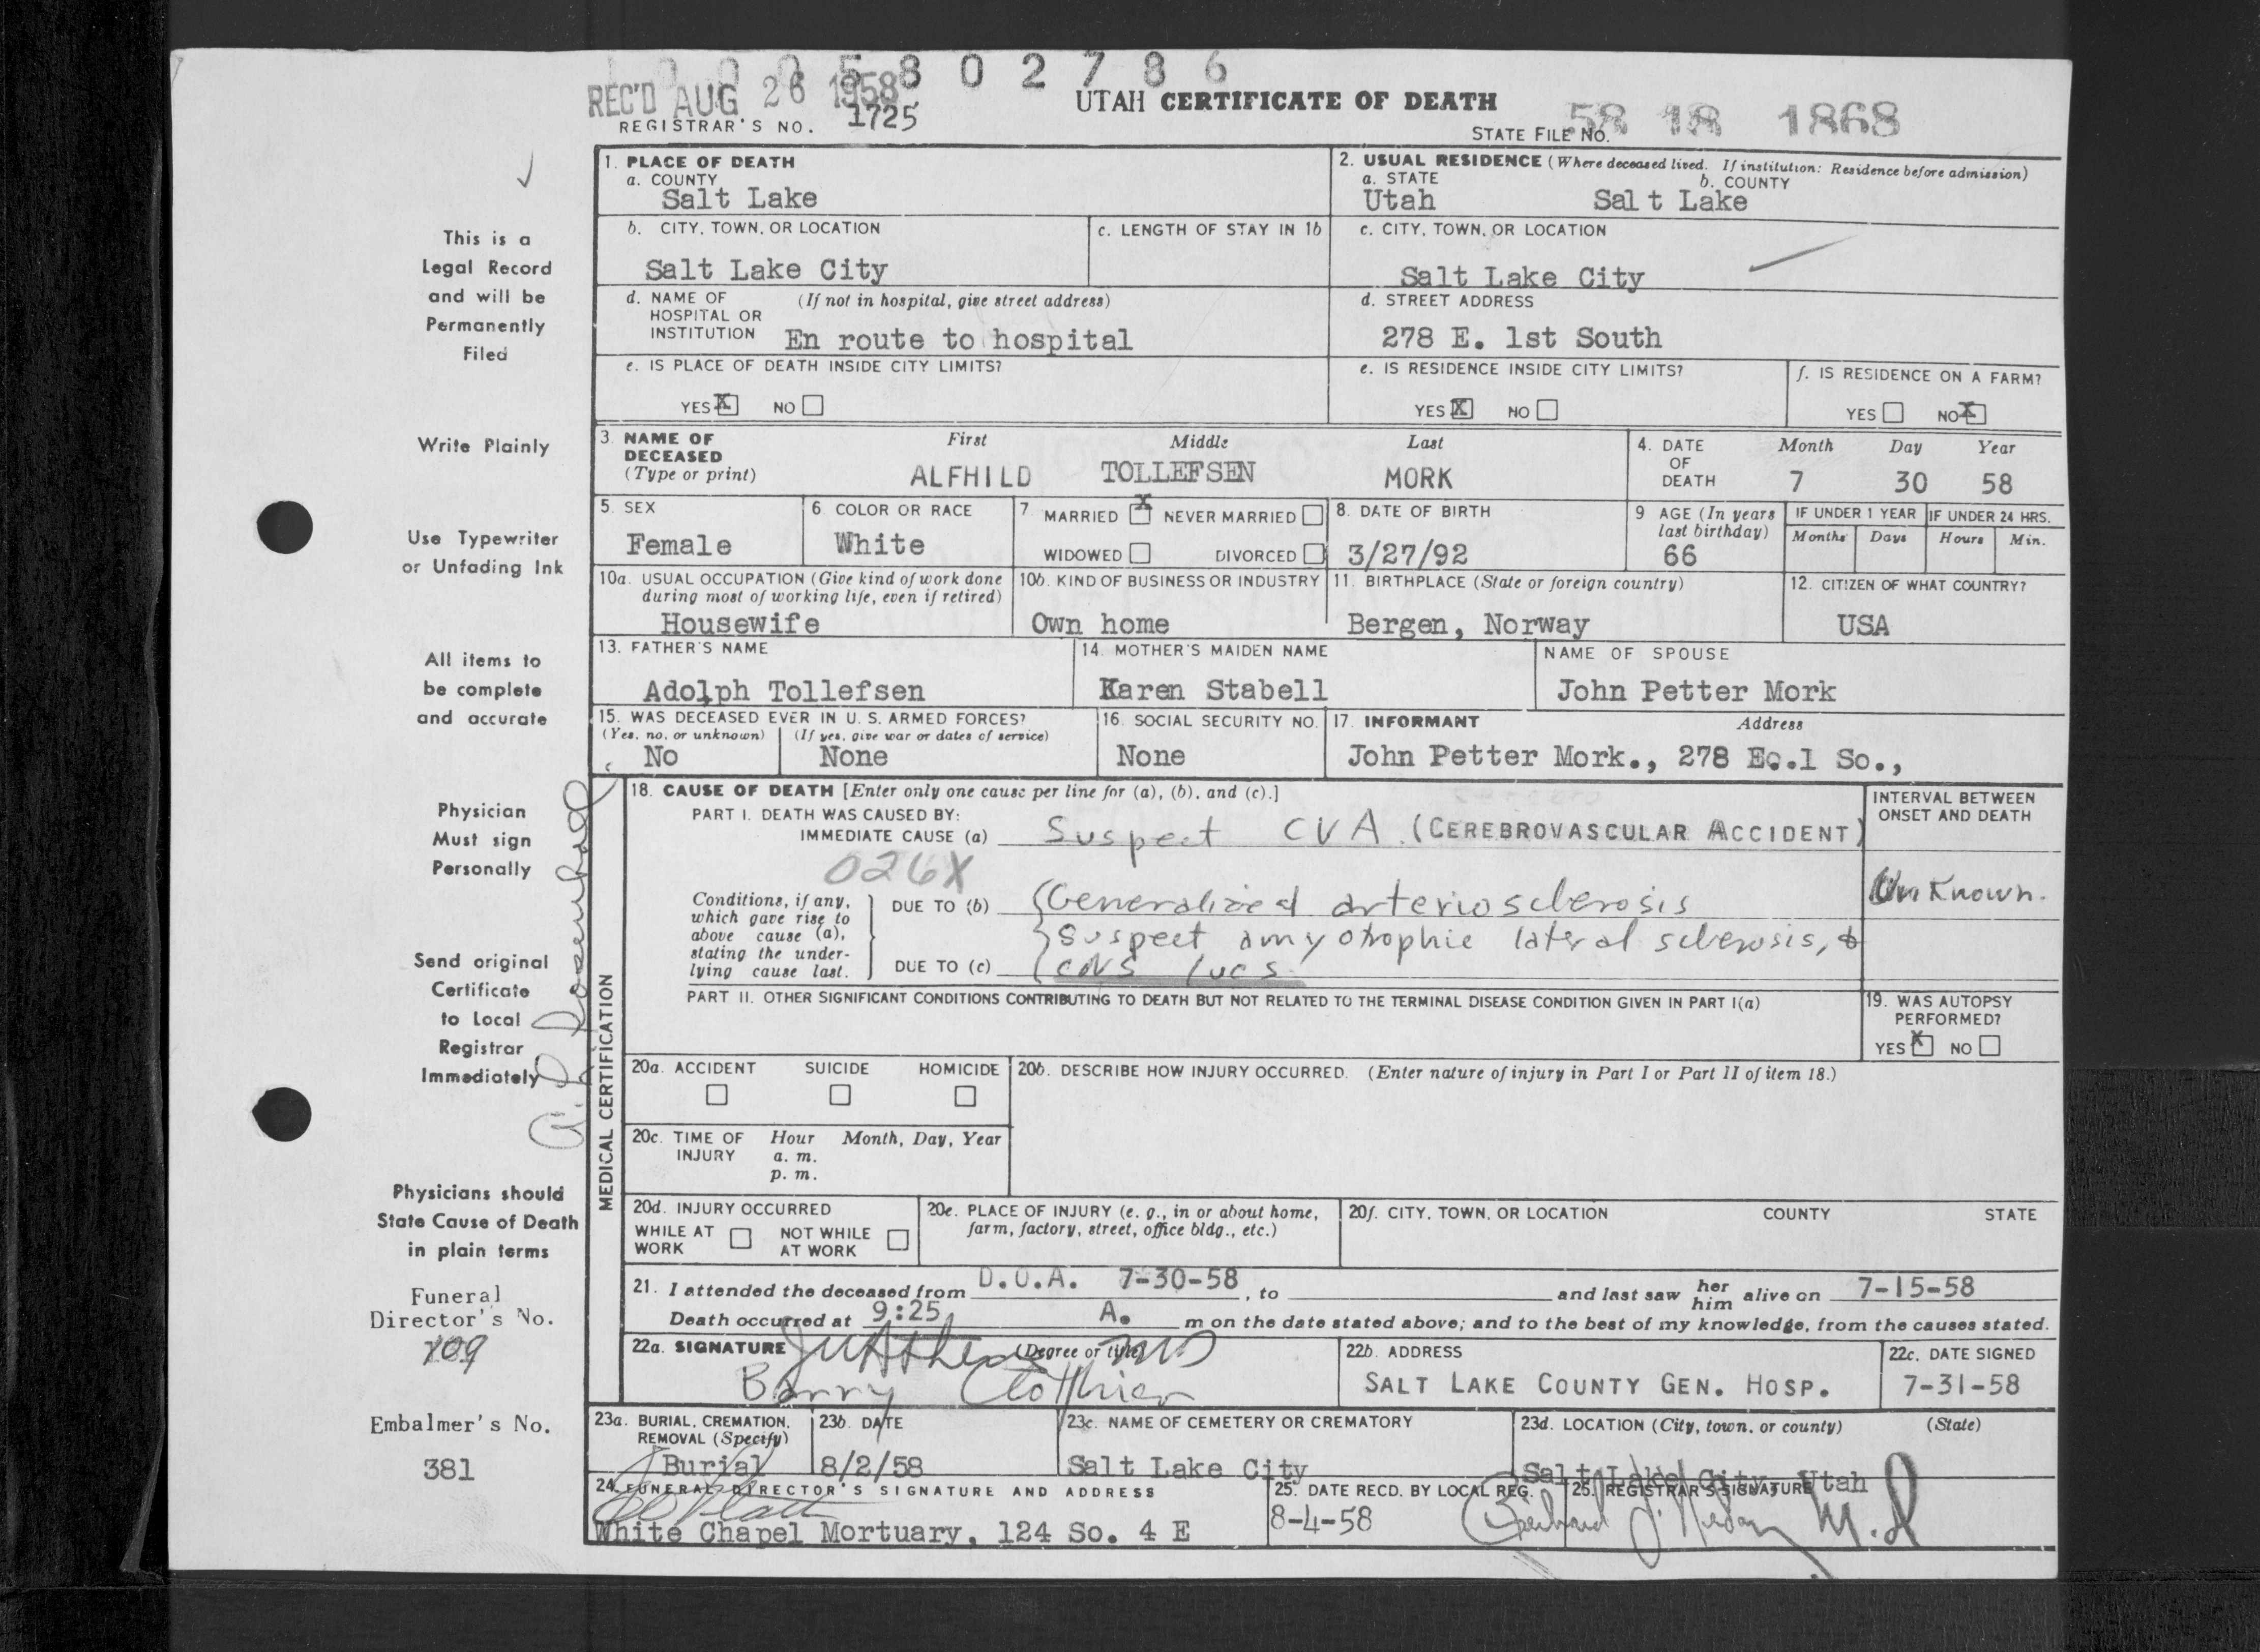 1 0 0 0 5 8 0 2 7 8 6
REC'D AUG 26 1958
REGISTRAR'S NO. 1725
UTAH CERTIFICATE OF DEATH
STATE FILE NO. 58 18 1868
This is a
Legal Record
and will be
Permanently
Filed
Write Plainly
Use Typewriter
or Unfading Ink
All items to
be complete
and accurate
Physician
Must sign
Personally
Send original
Certificate
to Local
Registrar
Immediately
Physicians should
State Cause of Death
in plain terms
Funeral
Director's No.
109
Embalmer's No.
381
1. PLACE OF DEATH
a. COUNTY
Salt Lake
2. USUAL RESIDENCE (Where deceased lived. If institution: Residence before admission)
a. STATE b. COUNTY
Utah Salt Lake
b. CITY, TOWN, OR LOCATION
Salt Lake City
c. LENGTH OF STAY IN 1b
c. CITY, TOWN, OR LOCATION
Salt Lake City
d. NAME OF HOSPITAL OR INSTITUTION (If not in hospital, give street address)
En route to hospital
d. STREET ADDRESS
278 E. 1st South
e. IS PLACE OF DEATH INSIDE CITY LIMITS?
YES X NO
e. IS RESIDENCE INSIDE CITY LIMITS?
YES X NO
f. IS RESIDENCE ON A FARM?
YES NO X
3. NAME OF DECEASED (Type or print)
First Middle Last
ALFHILD TOLLEFSEN MORK
4. DATE OF DEATH
Month Day Year
7 30 58
5. SEX
Female
6. COLOR OR RACE
White
7. MARRIED X NEVER MARRIED
WIDOWED DIVORCED
8. DATE OF BIRTH
3/27/92
9 AGE (In years last birthday)
66
IF UNDER 1 YEAR IF UNDER 24 HRS.
Months Days Hours Min.
10a. USUAL OCCUPATION (Give kind of work done during most of working life, even if retired)
Housewife
10b. KIND OF BUSINESS OR INDUSTRY
Own home
11. BIRTHPLACE (State or foreign country)
Bergen, Norway
12. CITIZEN OF WHAT COUNTRY?
USA
13. FATHER'S NAME
Adolph Tollefsen
14. MOTHER'S MAIDEN NAME
Karen Stabell
NAME OF SPOUSE
John Petter Mork
15. WAS DECEASED EVER IN U. S. ARMED FORCES?
(Yes, no, or unknown) (If yes, give war or dates of service)
No None
16. SOCIAL SECURITY NO.
None
17. INFORMANT Address
John Petter Mork., 278 Eo.1 So.,
MEDICAL CERTIFICATION
18. CAUSE OF DEATH [Enter only one cause per line for (a), (b), and (c).]
PART I. DEATH WAS CAUSED BY:
IMMEDIATE CAUSE (a) Suspect CVA (CEREBROVASCULAR ACCIDENT)
026X
Conditions, if any, which gave rise to above cause (a), stating the underlying cause last.
DUE TO (b) Generalized arteriosclerosis
Suspect amyotrophic lateral sclerosis, &
DUE TO (c) CNS lues
INTERVAL BETWEEN
ONSET AND DEATH
Unknown.
PART II. OTHER SIGNIFICANT CONDITIONS CONTRIBUTING TO DEATH BUT NOT RELATED TO THE TERMINAL DISEASE CONDITION GIVEN IN PART I(a)
19. WAS AUTOPSY PERFORMED?
YES X NO
20a. ACCIDENT SUICIDE HOMICIDE
20b. DESCRIBE HOW INJURY OCCURRED. (Enter nature of injury in Part I or Part II of item 18.)
20c. TIME OF INJURY Hour Month, Day, Year
a. m.
p. m.
20d. INJURY OCCURRED
WHILE AT WORK NOT WHILE AT WORK
20e. PLACE OF INJURY (e. g., in or about home, farm, factory, street, office bldg., etc.)
20f. CITY, TOWN, OR LOCATION COUNTY STATE
21. I attended the deceased from D.O.A. 7-30-58, to and last saw her him alive on 7-15-58
Death occurred at 9:25 A. m on the date stated above; and to the best of my knowledge, from the causes stated.
22a. SIGNATURE (Degree or title) MD
Barry Clothier
22b. ADDRESS
SALT LAKE COUNTY GEN. HOSP.
22c. DATE SIGNED
7-31-58
23a. BURIAL, CREMATION, REMOVAL (Specify)
Burial
23b. DATE
8/2/58
23c. NAME OF CEMETERY OR CREMATORY
Salt Lake City
23d. LOCATION (City, town, or county) (State)
Salt Lake City, Utah
24. FUNERAL DIRECTOR'S SIGNATURE AND ADDRESS
White Chapel Mortuary, 124 So. 4 E
25. DATE RECD. BY LOCAL REG.
8-4-58
26. REGISTRAR'S SIGNATURE
M.D